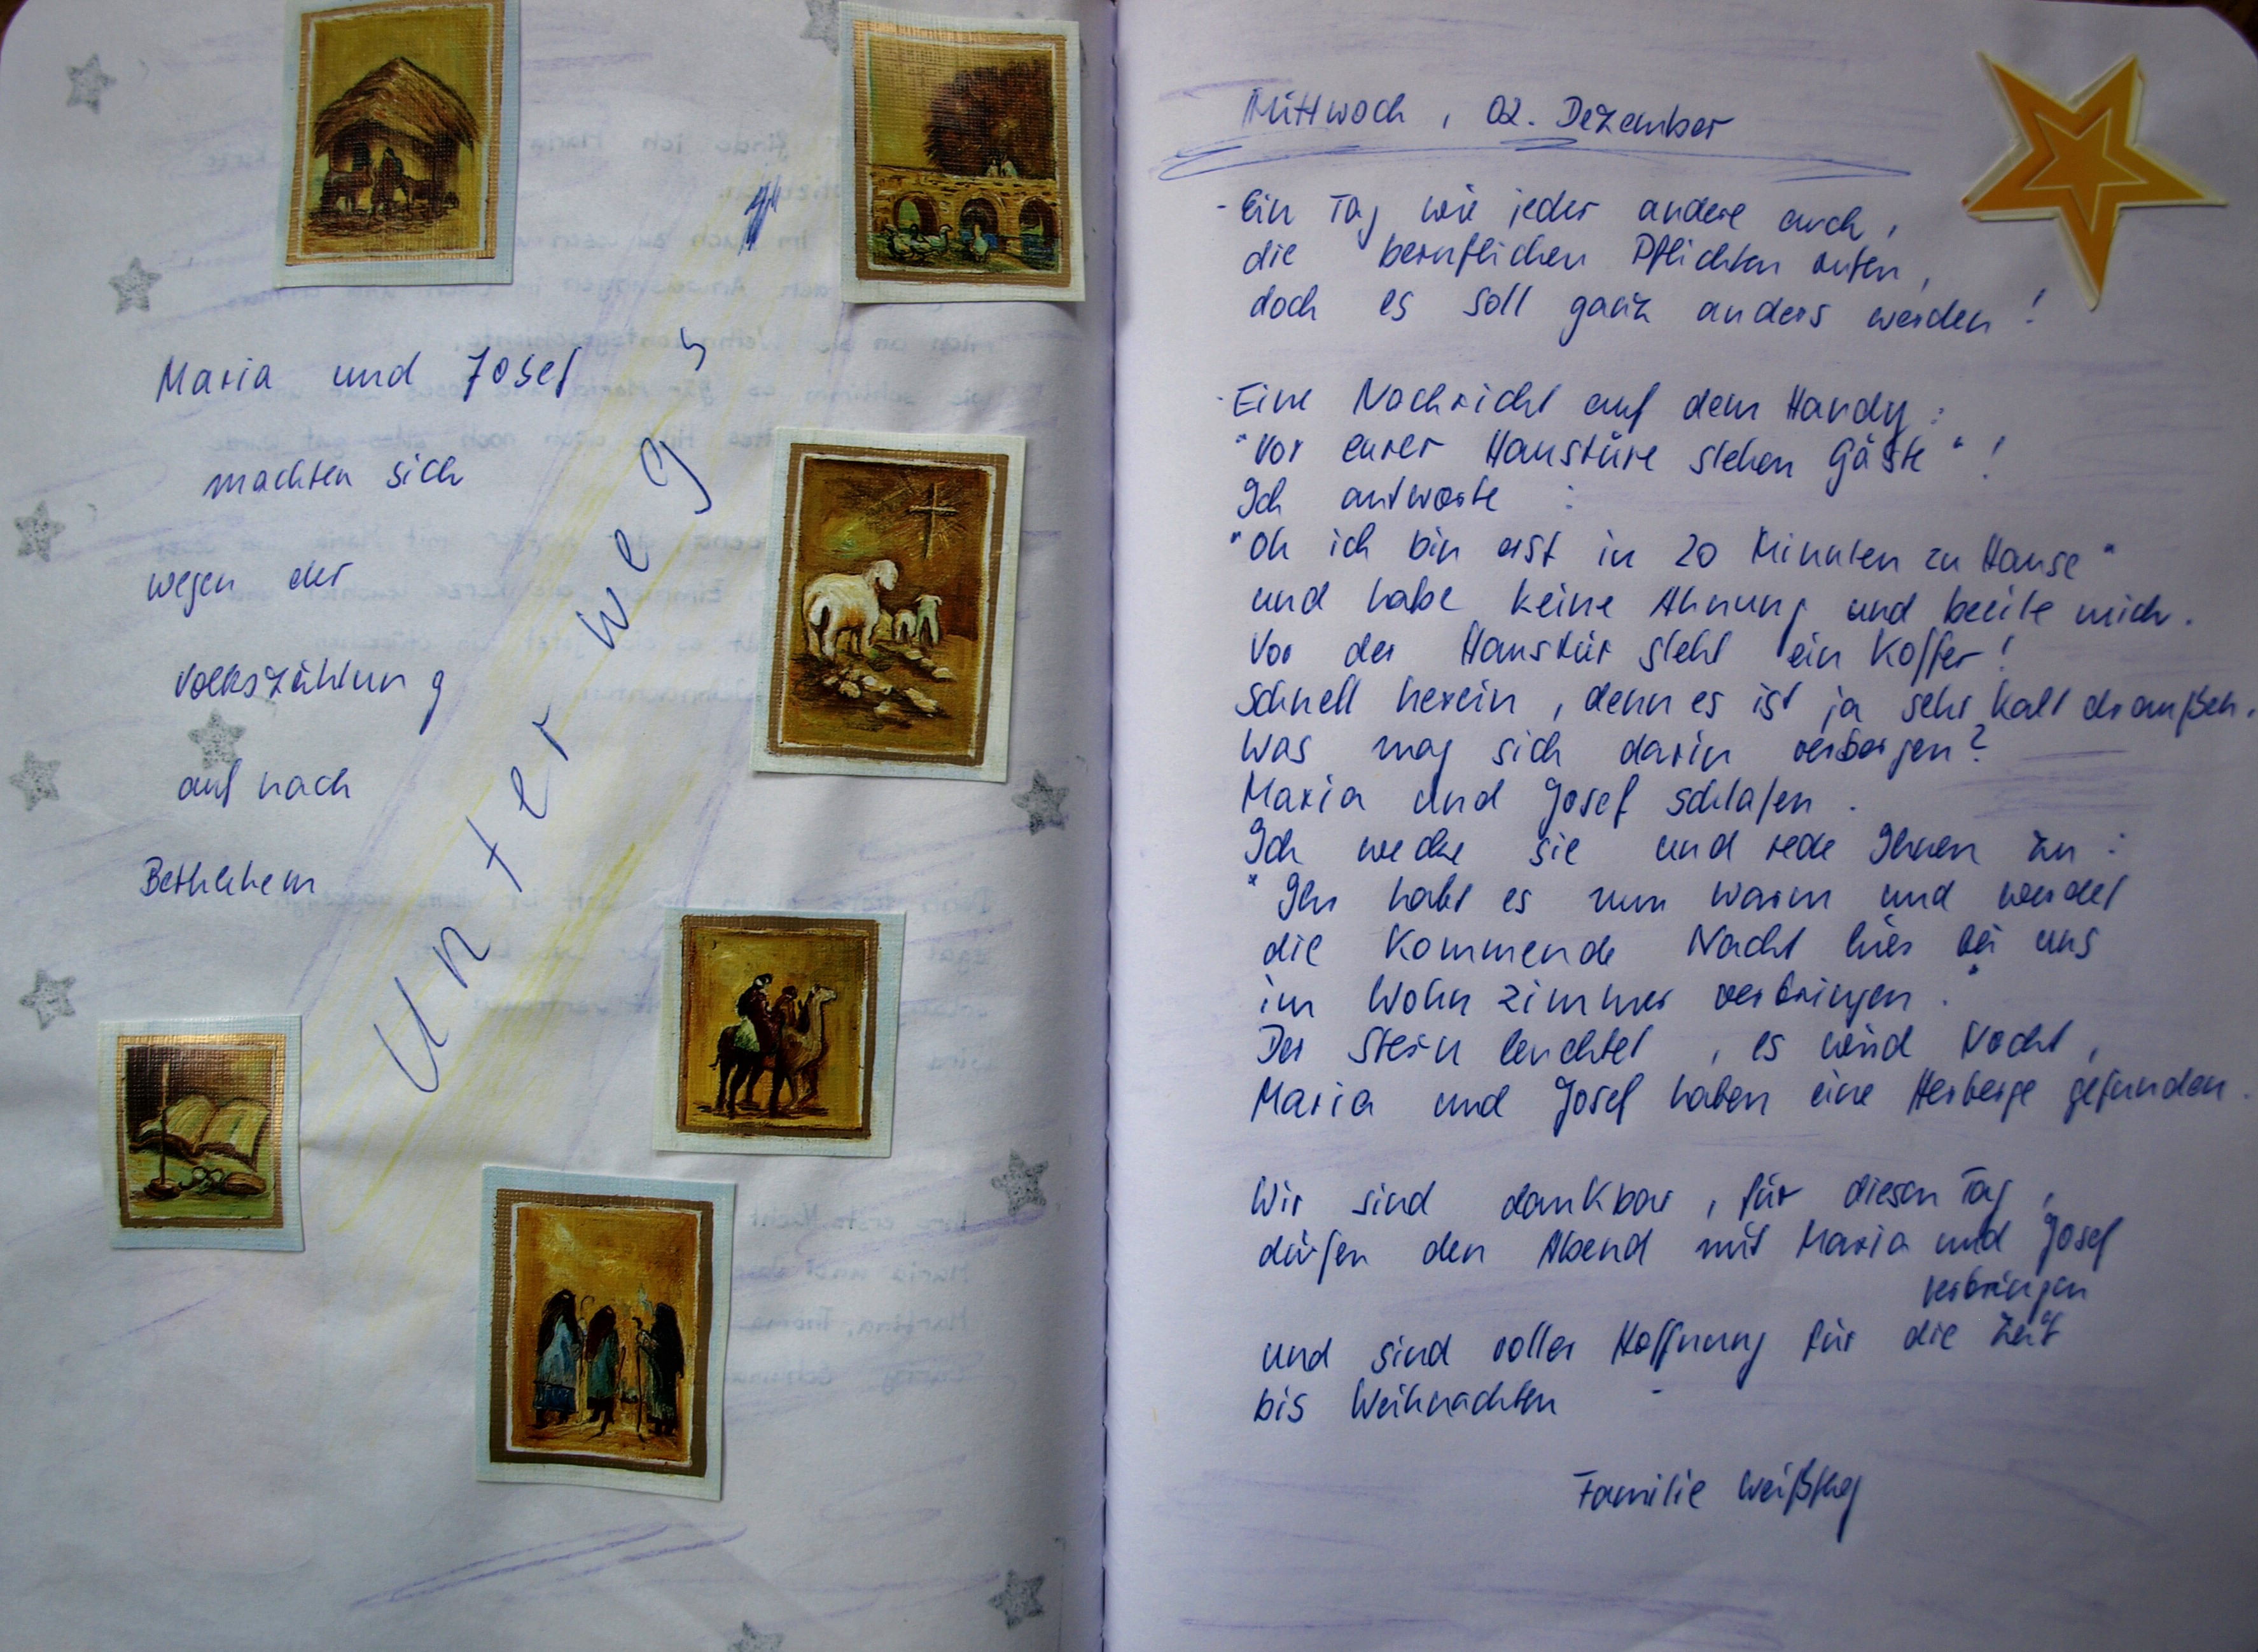 Maria und Josef
machten sich
wegen der
Volkszählung
auf nach
Bethlehem
Unterwegs
Mittwoch, 02. Dezember
- Ein Tag wie jeder andere auch,
die beruflichen Pflichten rufen,
doch es soll ganz anders werden!
- Eine Nachricht auf dem Handy:
"Vor eurer Haustüre stehen Gäste"!
Ich antworte:
"Oh ich bin erst in 20 Minuten zu Hause"
und habe keine Ahnung und beeile mich.
Vor der Haustür steht ein Koffer!
Schnell herein, denn es ist ja sehr kalt draußen.
Was mag sich darin verbergen?
Maria und Josef schlafen.
Ich wecke sie und rede Ihnen zu:
"Ihr habt es nun warm und werdet
die Kommende Nacht hier bei uns
im Wohnzimmer verbringen."
Der Stern leuchtet, es wird Nacht,
Maria und Josef haben eine Herberge gefunden.
Wir sind dankbar, für diesen Tag,
dürfen den Abend mit Maria und Josef
verbringen
und sind voller Hoffnung für die Zeit
bis Weihnachten
Familie